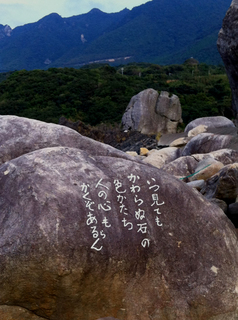 いつ見ても
かわらぬ石の
色かたち
人の心も
かくぞあるらん